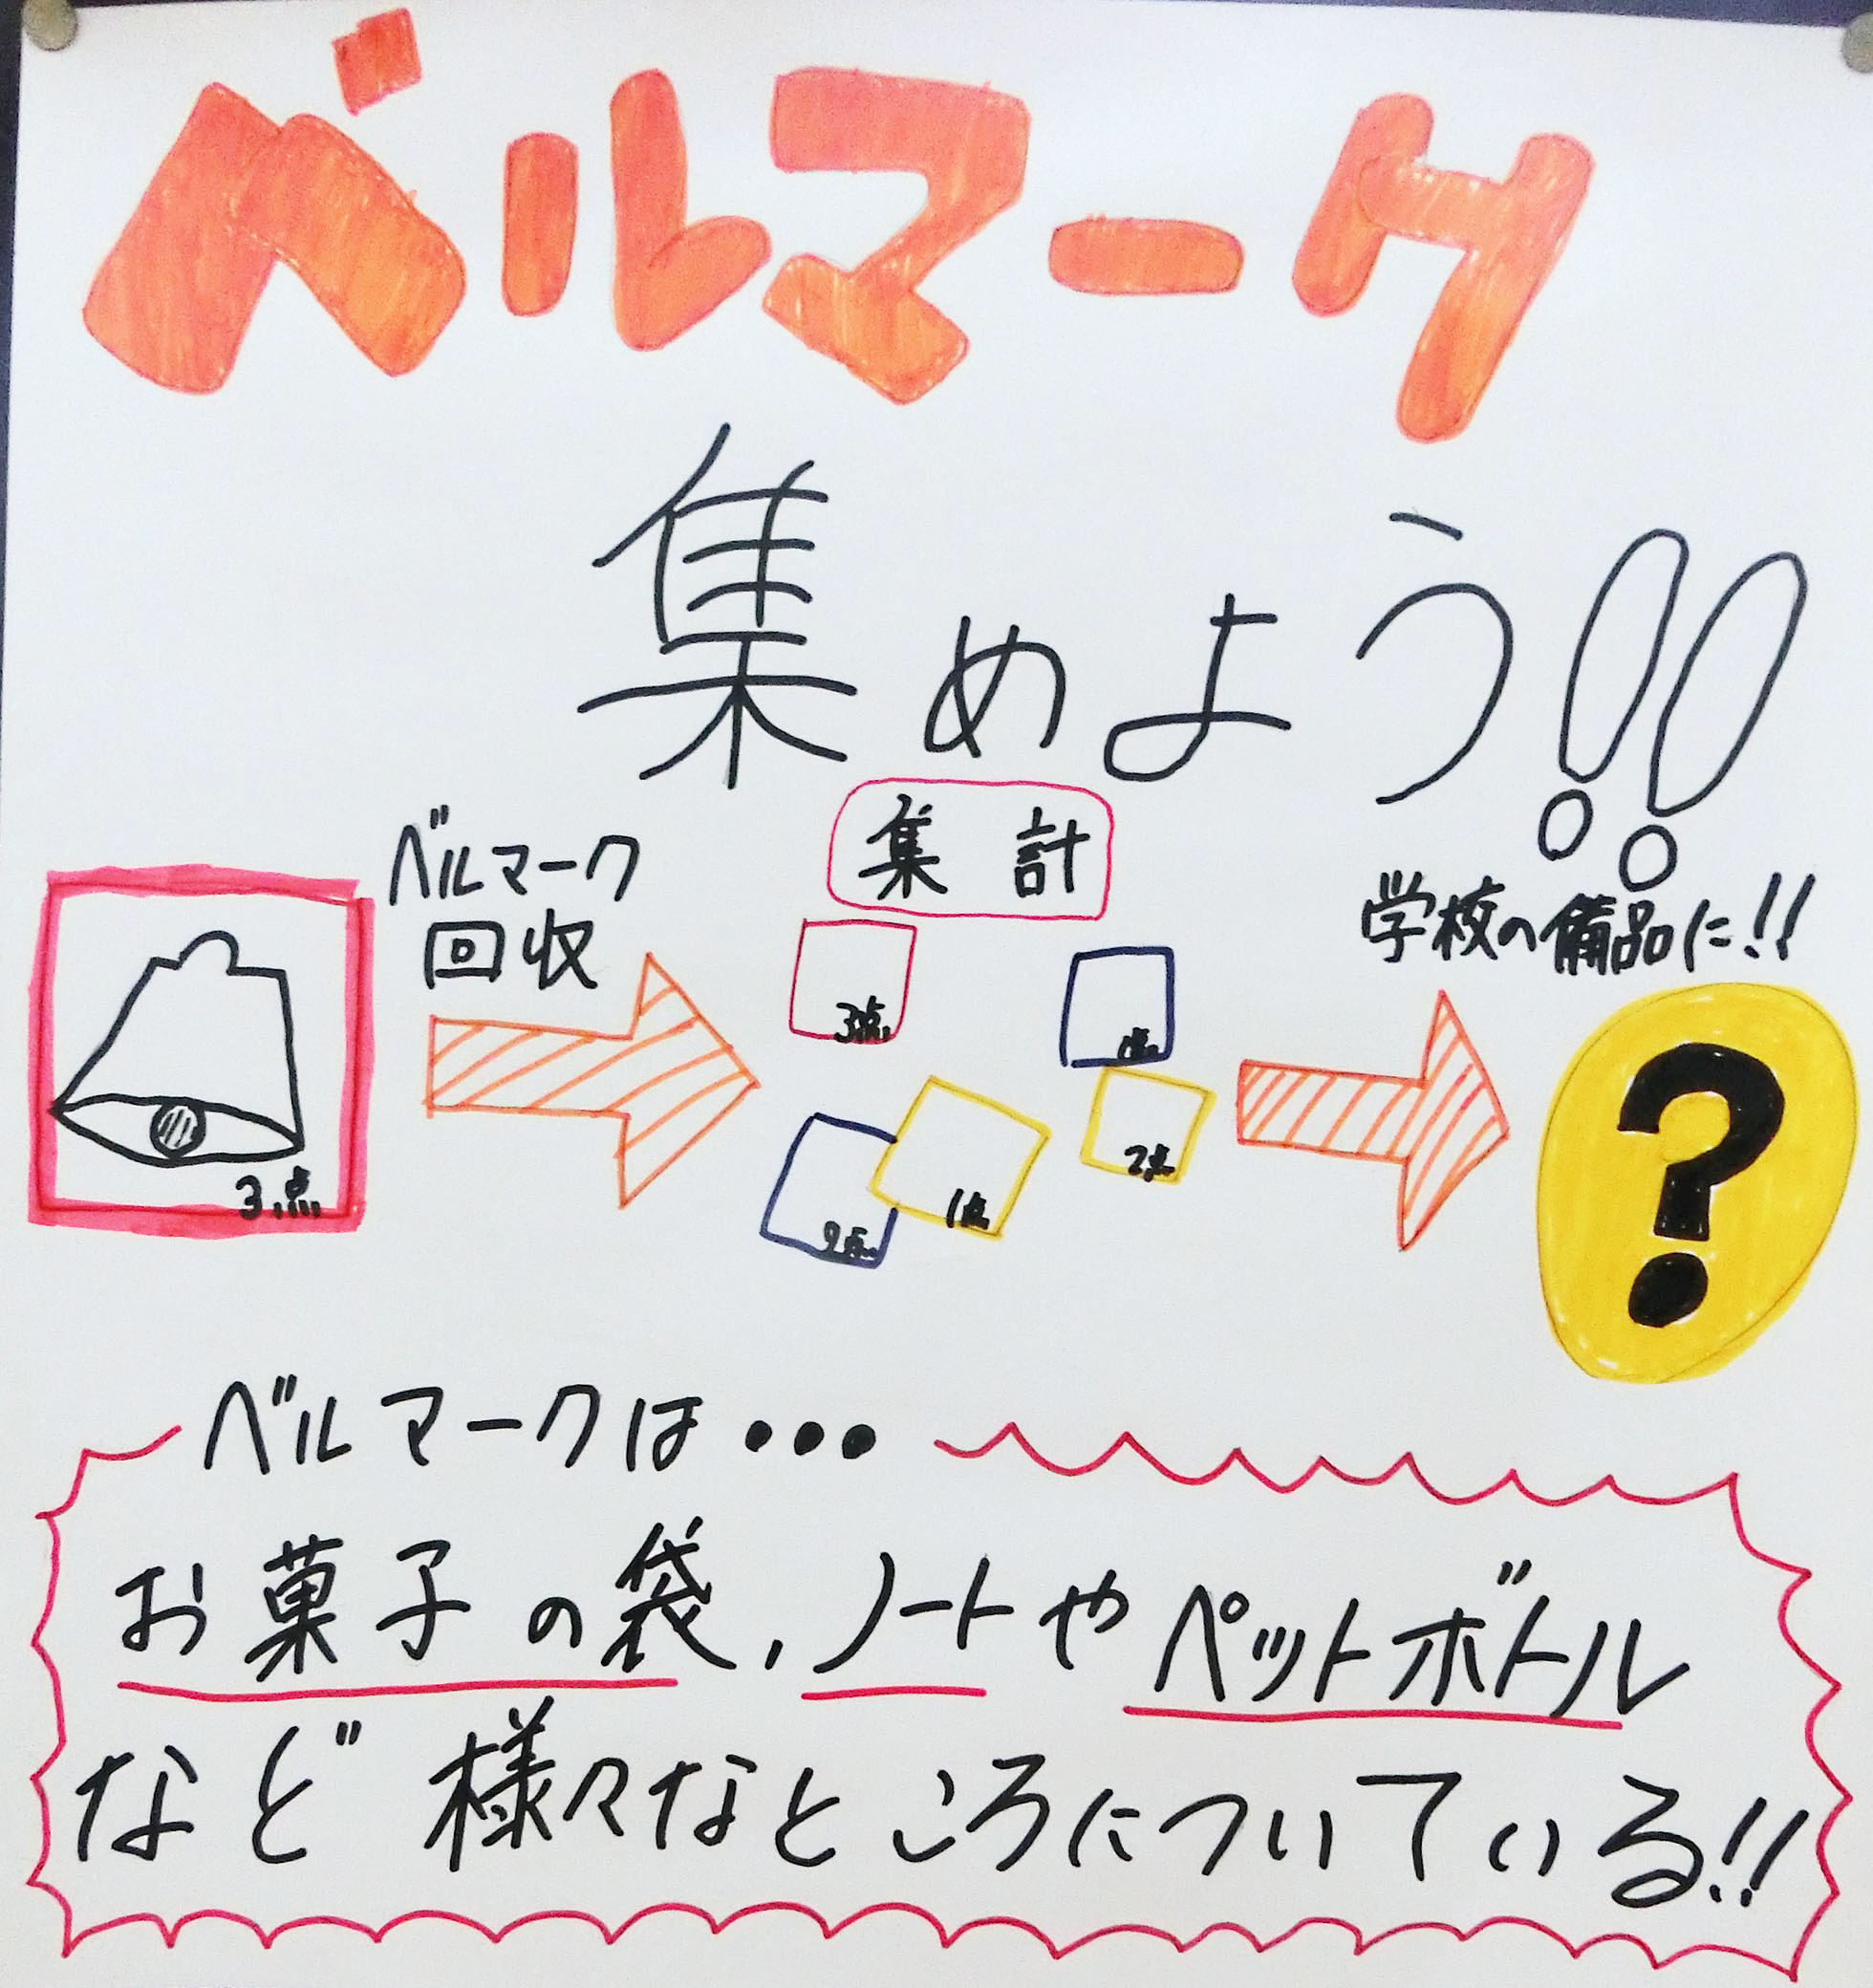 ベルマーク
集めよう!!
ベルマーク
回収
集計
学校の備品に!!
3点
3点
2点
1点
ベルマークは・・・
お菓子の袋、ノートやペットボトル
など様々なところについている!!